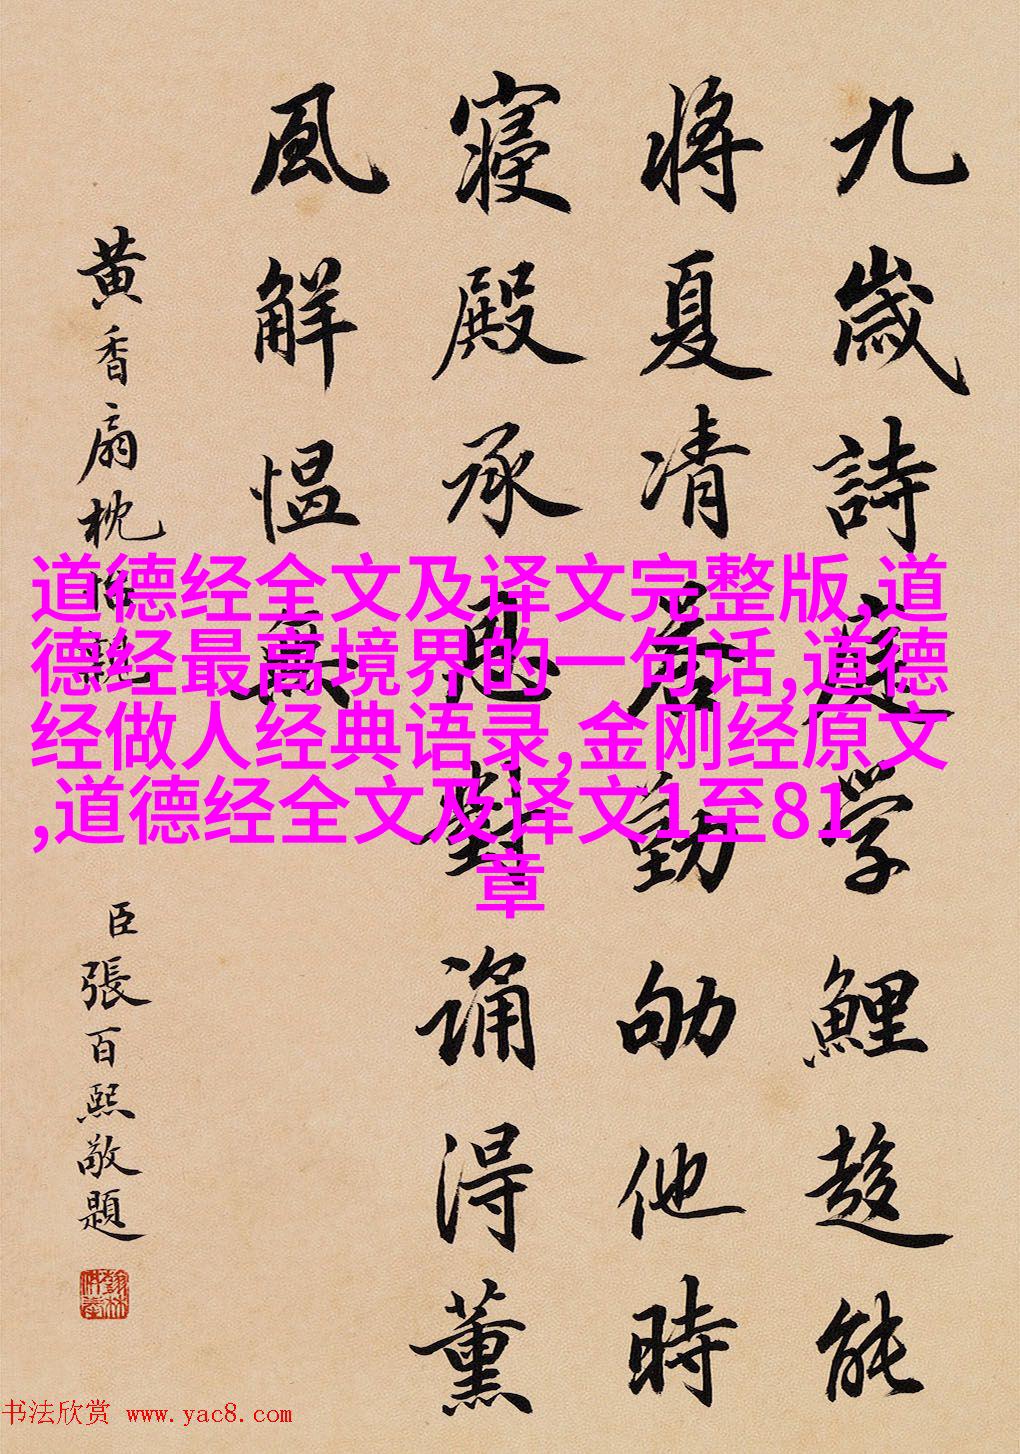 九歲詩庭學鯉趍能
將夏凊晨勤劬他時
寢殿承恩對誦得薰
風解愠無
黄香扇枕
臣張百熙敬題
道德经全文及译文完整版,道
德经最高境界的一句话,道德
经做人经典语录,金刚经原文
,道德经全文及译文1至81
章
书法欣赏 www.yac8.com